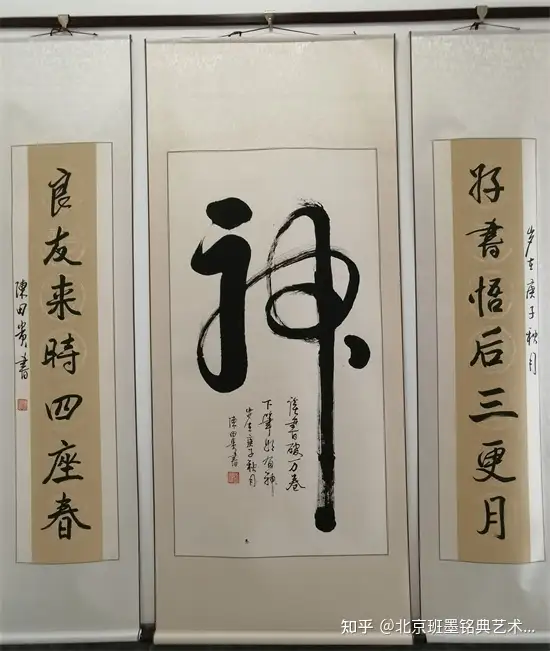 岁在庚子秋月
好書悟后三更月
神
读書破万卷
下筆如有神
岁在庚子秋月
陳田贵書
良友来時四座春
陳田贵書
知乎 @北京班墨铭典艺术...